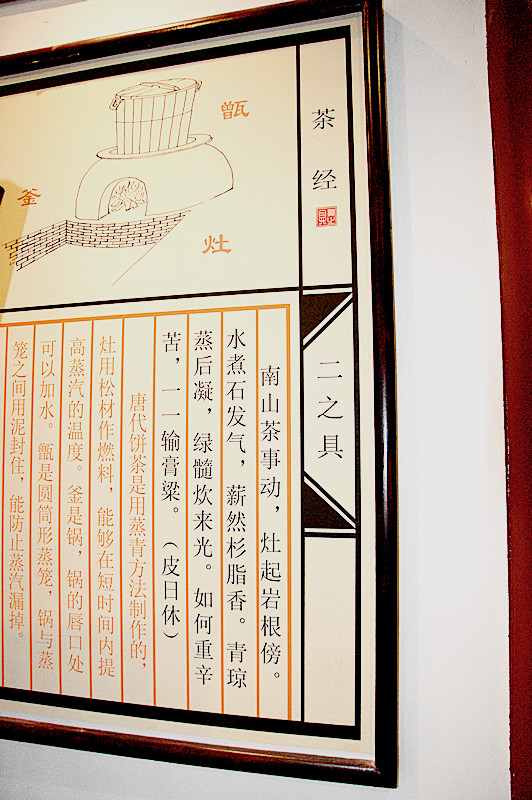 茶经
二之具
甑
釜
灶
南山茶事动，灶起岩根傍。
水煮石发气，薪然杉脂香。青琼
蒸后凝，绿髓炊来光。如何重辛
苦，一一输膏粱。（皮日休）
唐代饼茶是用蒸青方法制作的，
灶用松材作燃料，能够在短时间内提
高蒸汽的温度。釜是锅，锅的唇口处
可以加水。甑是圆筒形蒸笼，锅与蒸
笼之间用泥封住，能防止蒸汽漏掉。